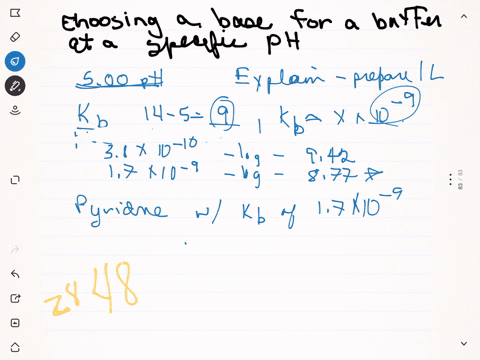 Choosing a base for a buffer
at a specific PH
5.00 pH Explain - prepare 1L
Kb 14-5= 9 , Kb ≈ x × 10⁻⁹
3.8 × 10⁻¹⁰ -log - 9.42
1.7 × 10⁻⁹ -log - 8.77
Pyridine w/ Kb of 1.7 × 10⁻⁹
28 48